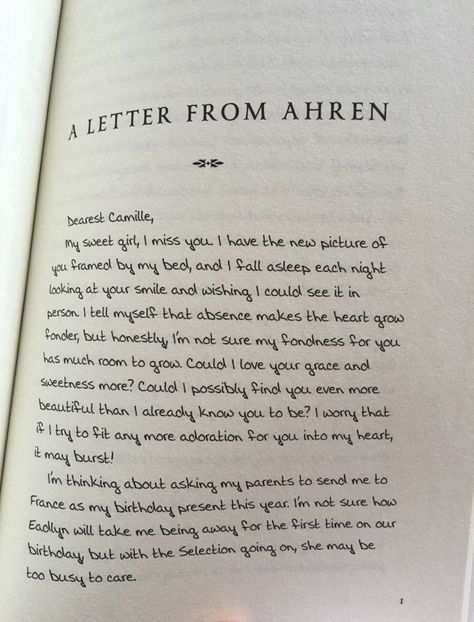 A LETTER FROM AHREN
Dearest Camille,
My sweet girl, I miss you. I have the new picture of
you framed by my bed, and I fall asleep each night
looking at your smile and wishing I could see it in
person. I tell myself that absence makes the heart grow
fonder, but honestly, I'm not sure my fondness for you
has much room to grow. Could I love your grace and
sweetness more? Could I possibly find you even more
beautiful than I already know you to be? I worry that
if I try to fit any more adoration for you into my heart,
it may burst!
I'm thinking about asking my parents to send me to
France as my birthday present this year. I'm not sure how
Eadlyn will take me being away for the first time on our
birthday, but with the Selection going on, she may be
too busy to care.
1